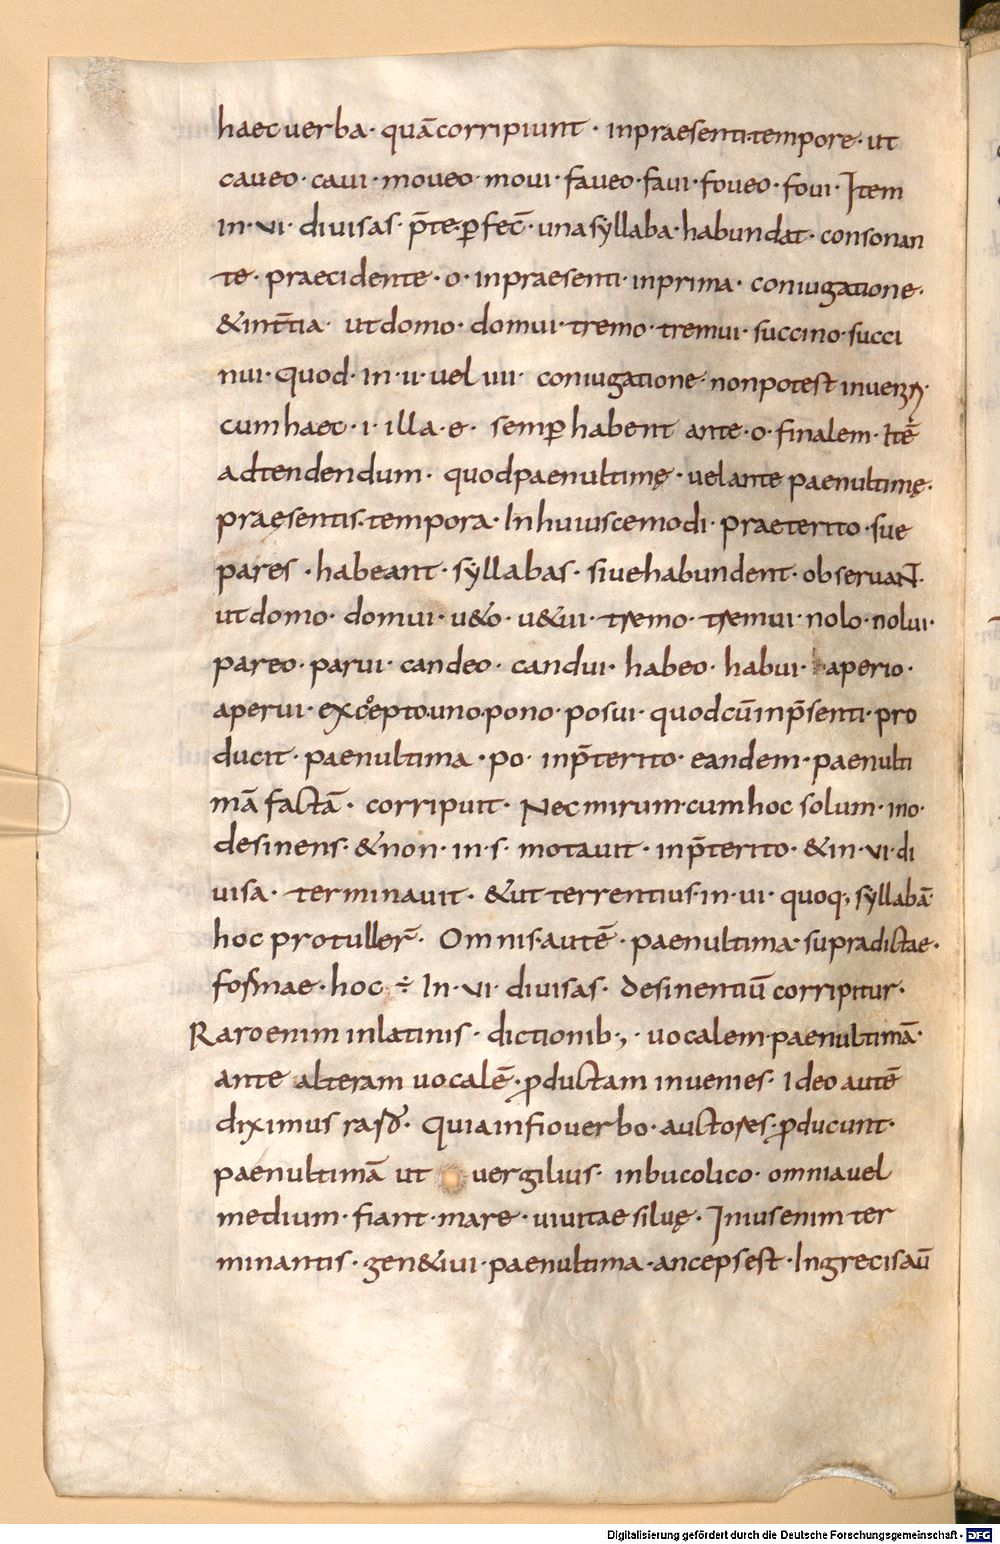 haec uerba· quā corripiunt· in praesenti· tempore· ut
caueo· caui· moueo· moui· faueo· faui· foueo· foui· Item
in· vi· diuisas· p̄te· ꝑfec̄· una syllaba· habundat· consonan
te· praecidente· o· in praesenti· in prima· coniugatione·
& in t̄tia· ut domo· domui· tremo· tremui· succino· succi
nui· quod· in· ii· uel iiii· coniugatione· non potest
cum haec· i· illa· e· semꝑ habent ante· o· finalem· Itē
adtendendum· quod paenultimę· uel ante paenultimę·
praesentis· tempora· In huiuscemodi· praeterito· siue
pares· habeant· syllabas· siue habundent· obseruaNT·
ut domo· domui· u&o· u&ui· tremo· tremui· nolo· nolui·
pareo· parui· candeo· candui· habeo· habui· aperio·
aperui· excoepto· uno· pono· posui· quod cū in p̄senti· pro
ducit· paenultima· po· in p̄terito· eandem· paenulti
mā factā· corripuit· Nec mirum· cum hoc solum· in o·
desinens· & non· in· s· motauit· in p̄terito· & in· vi· di
uisa· terminauit· & ut terrentius· in· ui· quoq; syllabā·
hoc protuller̄· Omnis· autē· paenultima· supradictae·
formae· hoc ÷ In· vi· diuisas· desinentiū corripitur·
Raro enim in latinis· dictionib;· uocalem· paenultimā·
ante alteram uocalē· ꝓductam inuenies· Ideo autē
diximus raro· Quia in fio uerbo· auctores· ꝓducunt·
paenultimā ut uergilius· in bucolico· omnia uel
medium· fiant· mare· uiuitae siluę· In ius enim ter
minantis· gen&iui· paenultima· anceps est· In grecis aū
Digitalisierung gefördert durch die Deutsche Forschungsgemeinschaft - DFG